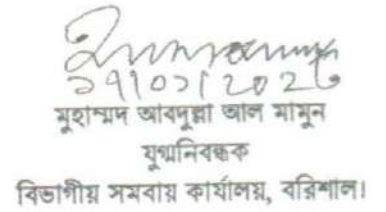 ১৭/০১/২০২৬
মুহাম্মদ আবদুল্লা আল মামুন
যুগ্মনিবন্ধক
বিভাগীয় সমবায় কার্যালয়, বরিশাল।